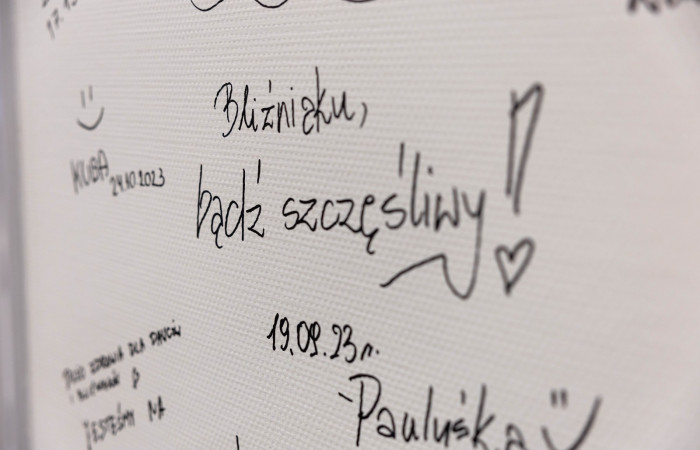 17.1
KUBA
24.10.2023
Bliźniąku,
bądź szczęśliwy!
19.09.23r.
Pauluśka
ZDROWIA DLA
I
JESTEŚMY NA